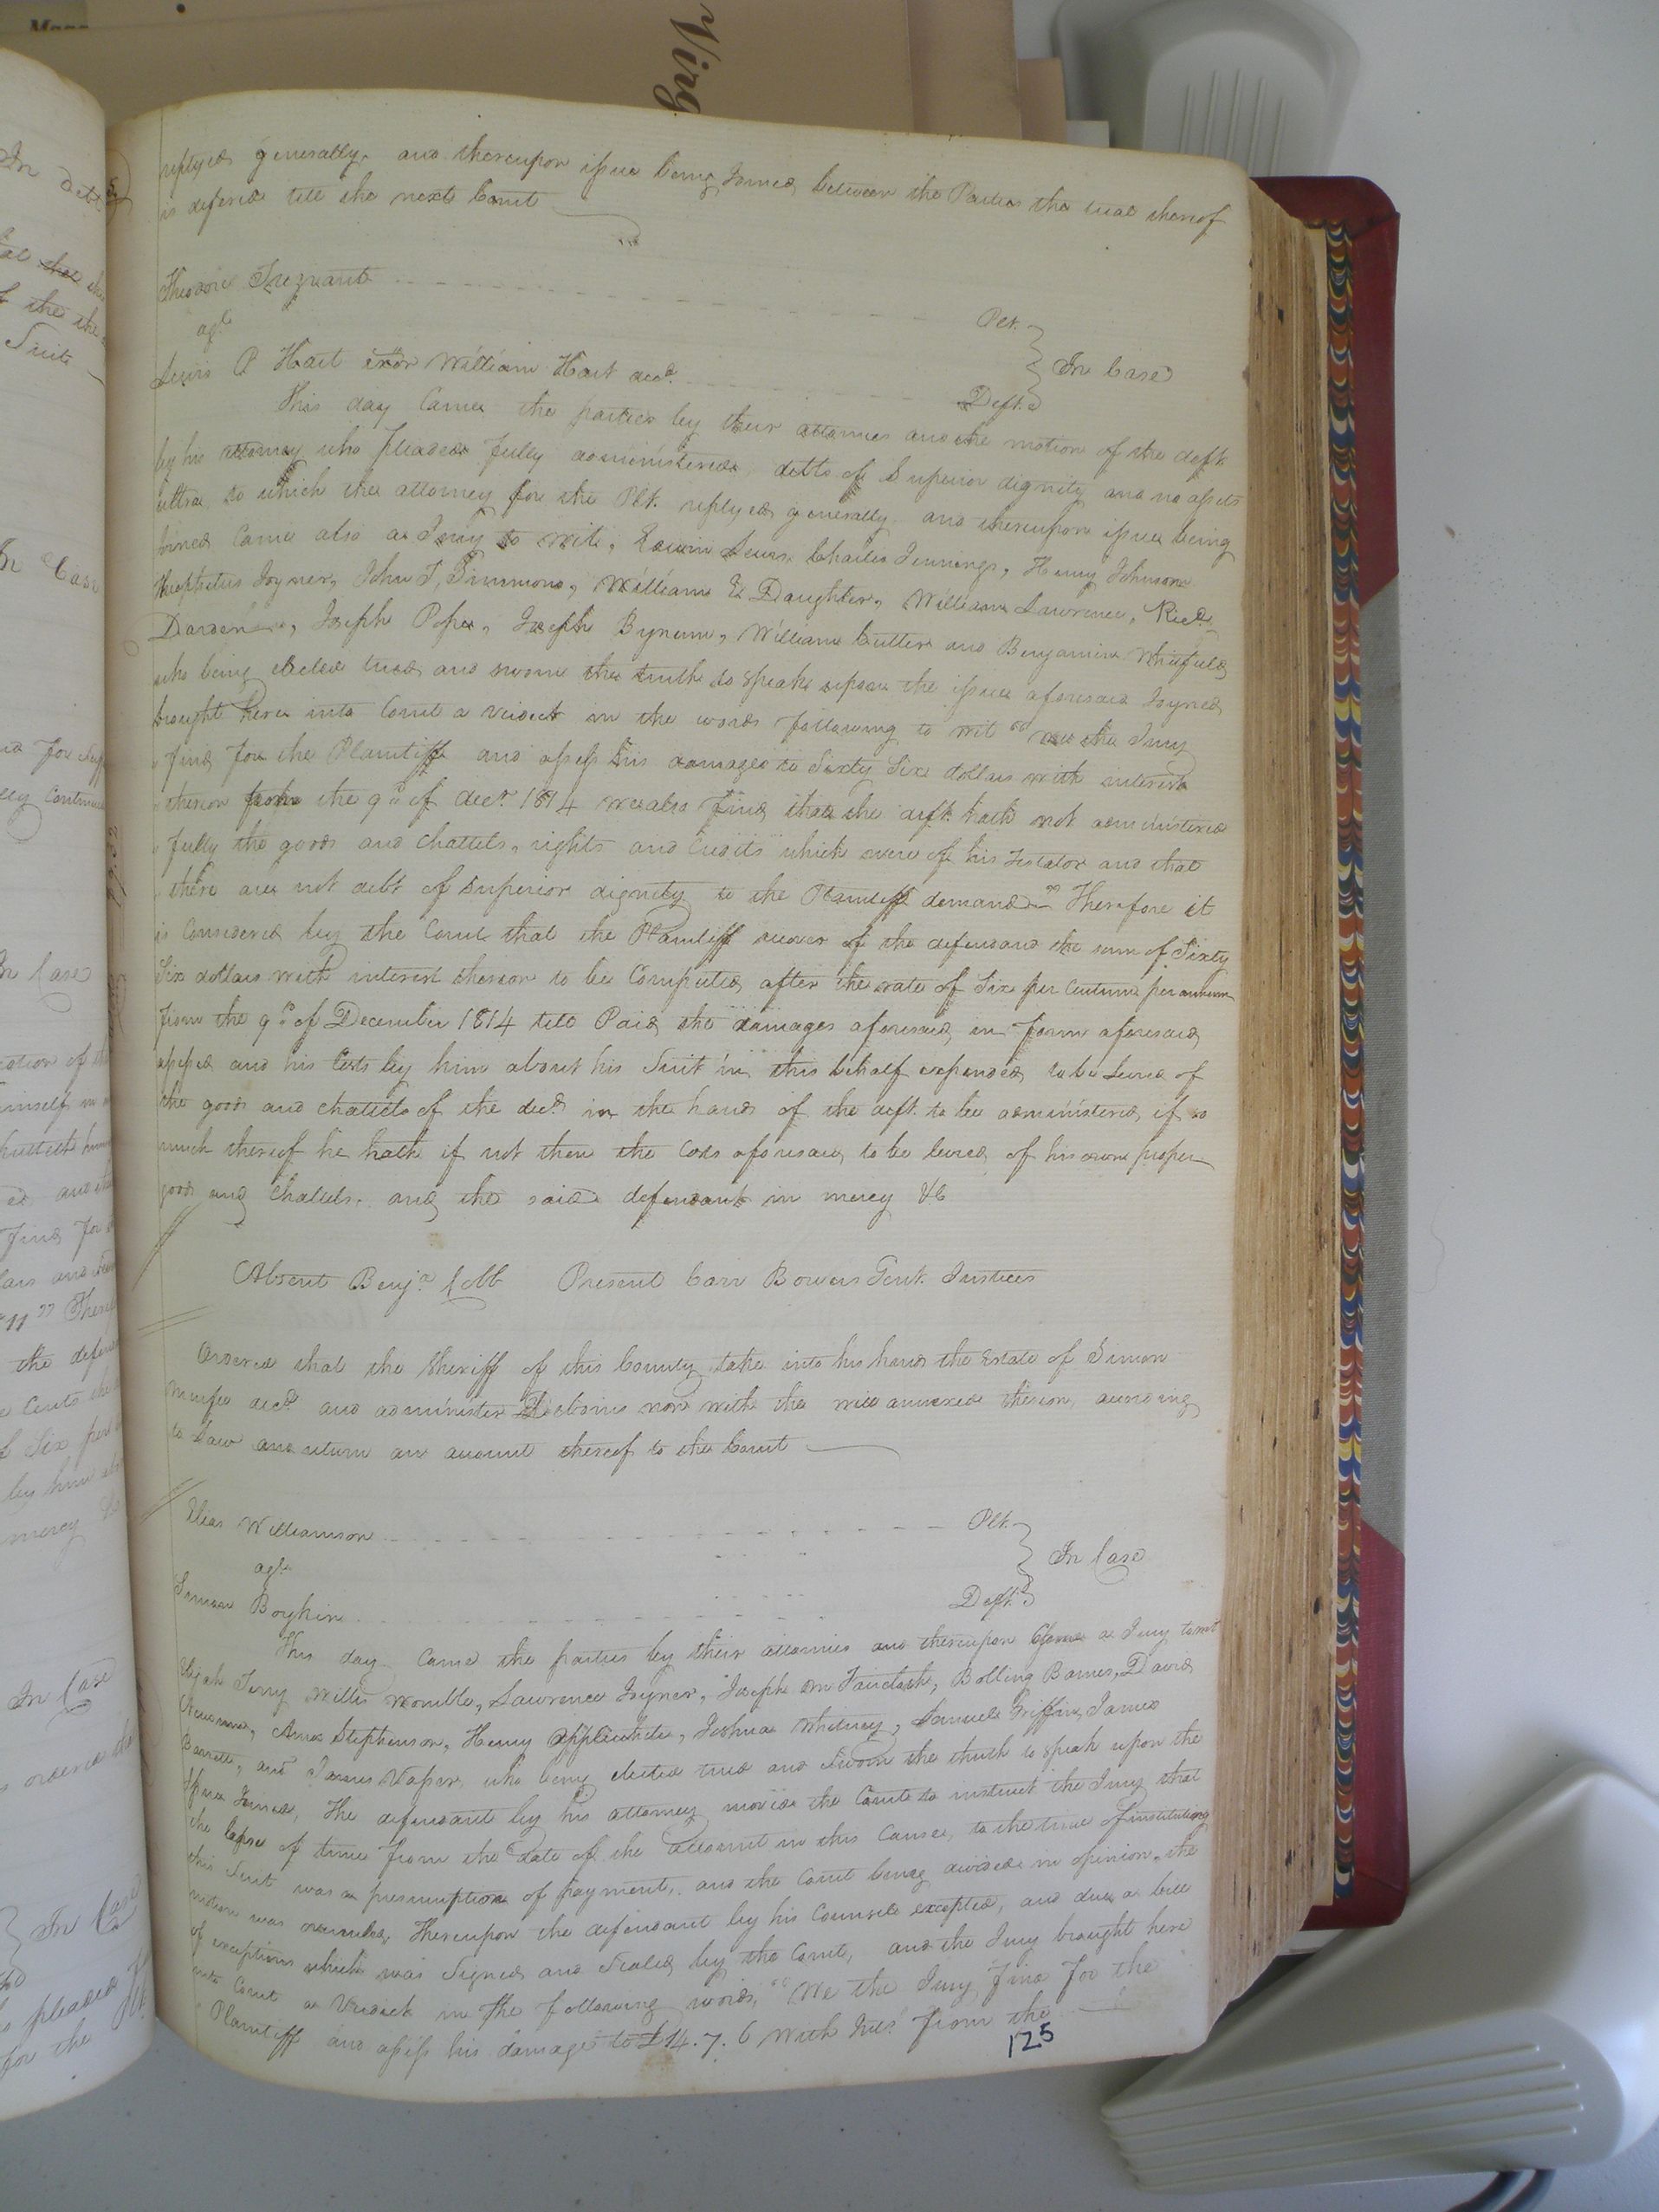 Virg
replyed generally, and thereupon issue being Joined between the Parties the trial thereof
is defered till the next Court
Theodore Trezvant Plt.
agt
Lewis P Hart exor William Hart decd. Deft.
In Case
This day Came the parties by their attornies and the motion of the deft
by his attorney who pleaded fully administered, debts of Superior dignity and no assets
ultra, to which the attorney for the Plt. replyed generally, and thereupon issue being
Joined Came also a Jury to wit, Edwin Lewis, Charles Jennings, Henry Johnson
Theophilus Joyner, John T, Simmons, William E Daughtery, William Lawrence, Richd.
Darden, Joseph Pope, Joseph Bynum, William Cutler and Benjamin Whitfield,
who being elected tried and sworn the truth to speak upon the issue aforesaid Joyned,
brought here into Court a verdict in the words following to wit "we the Jury
" find for the Plaintiff and assess his damages to Sixty Six dollars with interest
" thereon from the 9th of decr. 1814 we also find that the deft. hath not administered
" fully the goods and chattels, rights and Credits which were of his Testator and that
" there are not debt of superior dignity to the Plaintiff demand" Therefore it
is Considered by the Court that the Plaintiff recover of the defendant the sum of Sixty
Six dollars with interest thereon to be Computed after the rate of Six per Centum per annum
from the 9th of December 1814 till Paid, the damages aforesaid, in form aforesaid,
assessed and his Costs by him about his Suit in this behalf expended, to be Levied of
the goods and chattels of the decd. in the hands of the deft. to be administered, if so
much thereof he hath if not then the Costs aforesaid, to be levied, of his own proper
goods and Chattels, and the said defendant in mercy &c
Absent Benja. Cobb Present Carr Bowers Gent. Justices
Ordered that the Sheriff of this County take into his hands the Estate of Simon
Murfee decd. and administer De bonis non with the will annexed thereon, according
to Law and return an account thereof to the Court
Elias Williamson Plt.
agt.
Simon Boykin Deft.
In Case
This day Came the parties by their attornies and thereupon Came a Jury to wit
Elijah Terry Willis Womble, Lawrence Joyner, Joseph M Fauclash, Bolling Barnes, David
Newsome, Amos Stephenson, Henry Applewhite, Joshua Whitney, Samuel Griffin, James
Barrett, and James Vasser, who being elected tried and Sworn the thuth to speak upon the
Issue Joined, The defendant by his attorney moved the Court to instruct the Jury that
the lapse of time from the date of the account in this Cause, to the time of instituting
this Suit was a presumption of payment, and the Court being divided in opinion, the
motion was overruled, Thereupon the defendant by his Counsel excepted, and drew a bill
of exceptions which was Signed and Sealed by the Court, and the Jury brought here
into Court a Verdict in the following words, "We the Jury find for the
" Plaintiff and assess his damages to £14.7.6 with Int. from the
125